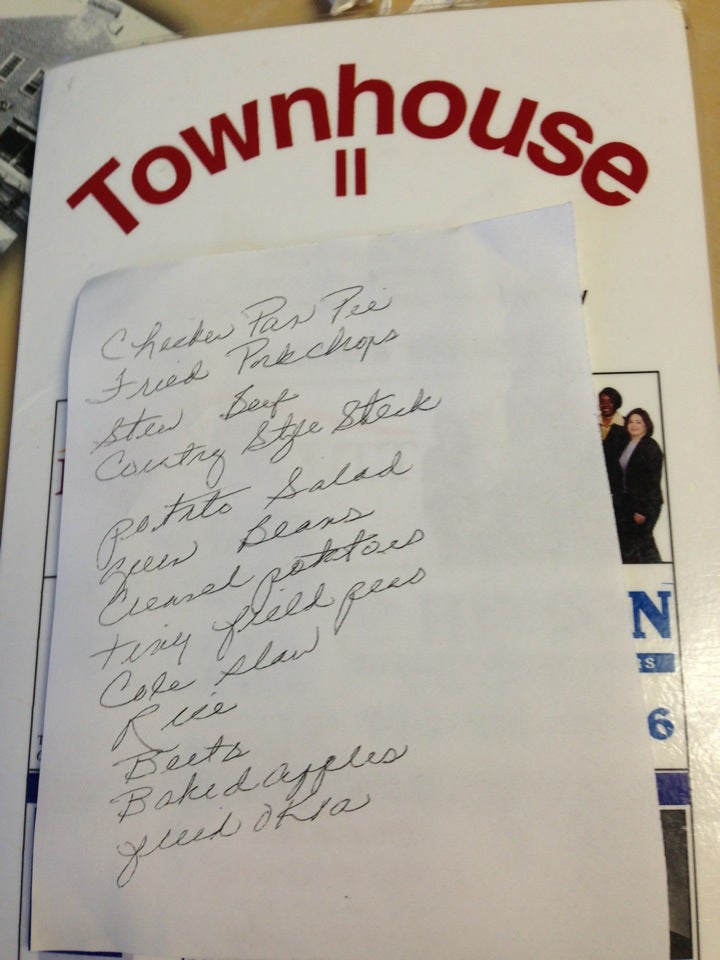 Townhouse
II
Chicken Pan Pie
Fried Porkchops
Stew Beef
Country Style Steak
Potato Salad
Green Beans
Creamed potatoes
tiny field peas
Cole slaw
Rice
Beets
Baked apples
fried okra
N
S
6